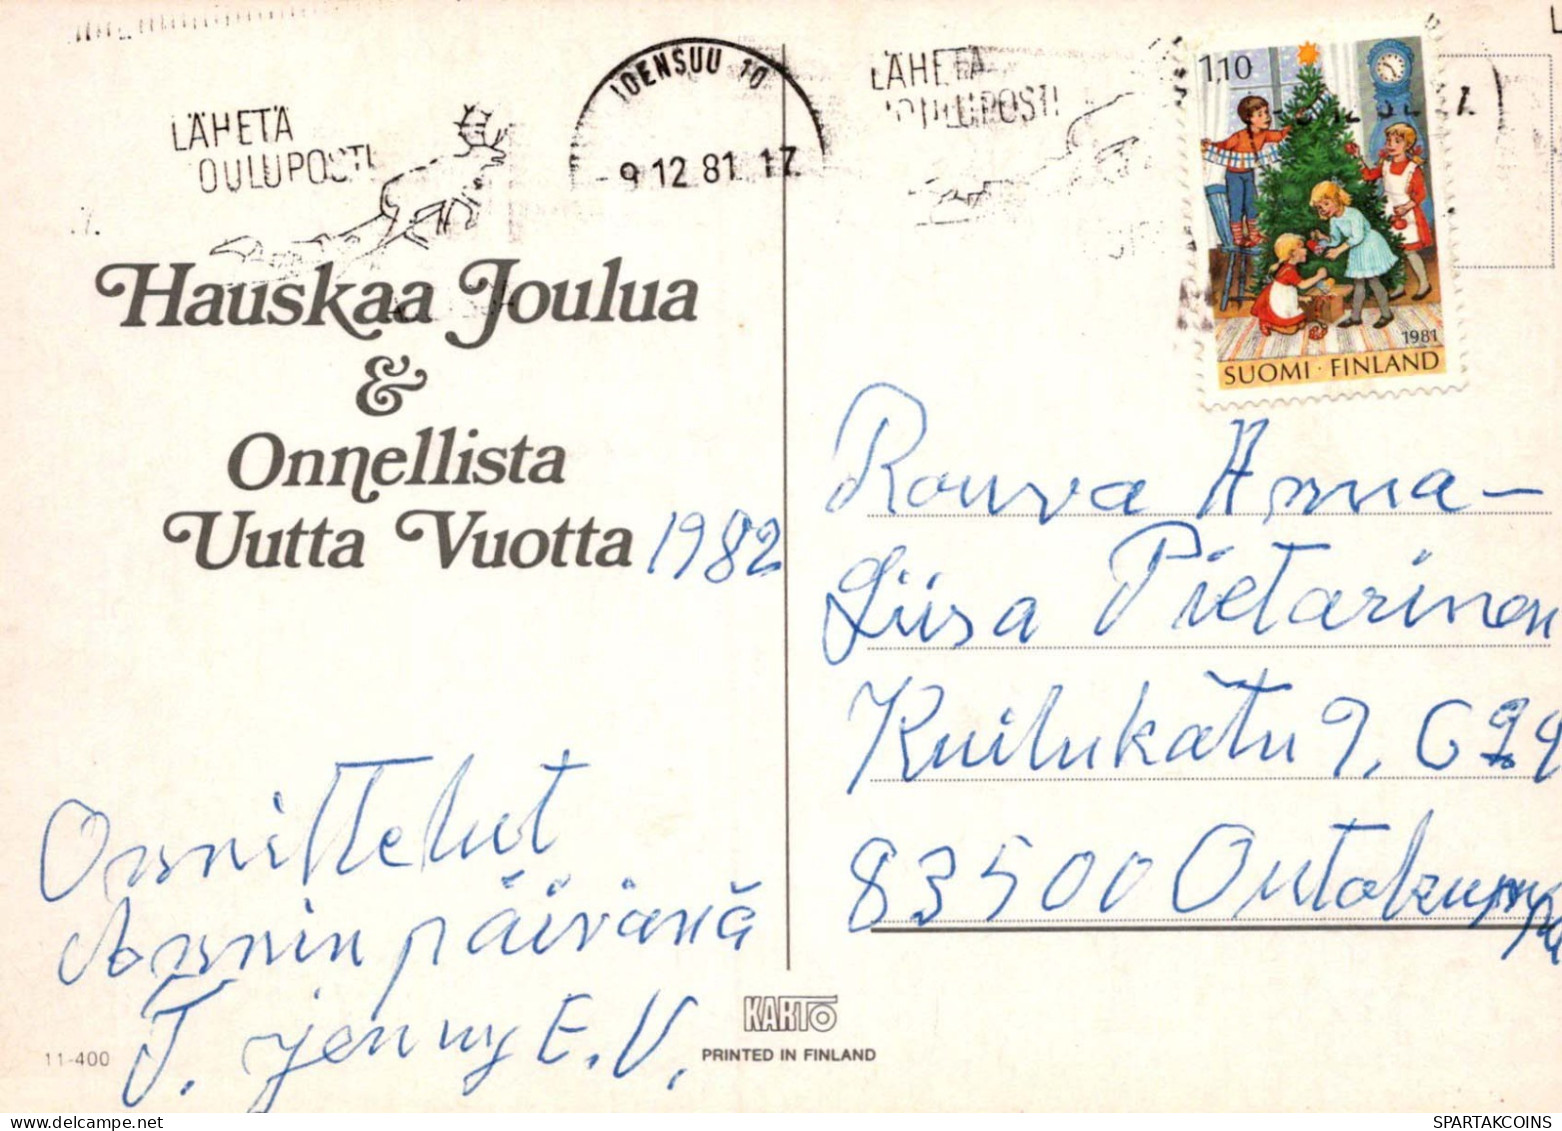 LÄHETÄ
OULUPOSTI
JOENSUU 10
9.12.81 17
LÄHETÄ
JOULUPOSTI
1,10
1981
SUOMI · FINLAND
Hauskaa Joulua
&
Onnellista
Uutta Vuotta 1982
Rouva Anna-
Liisa Pietarinen
Kuilukatu 9, C 29
83500 Outokumpu
Onnittelut
Annin päivänä
T. Jenny E.V.
KARTO
PRINTED IN FINLAND
11-400
SPARTAKCOINS